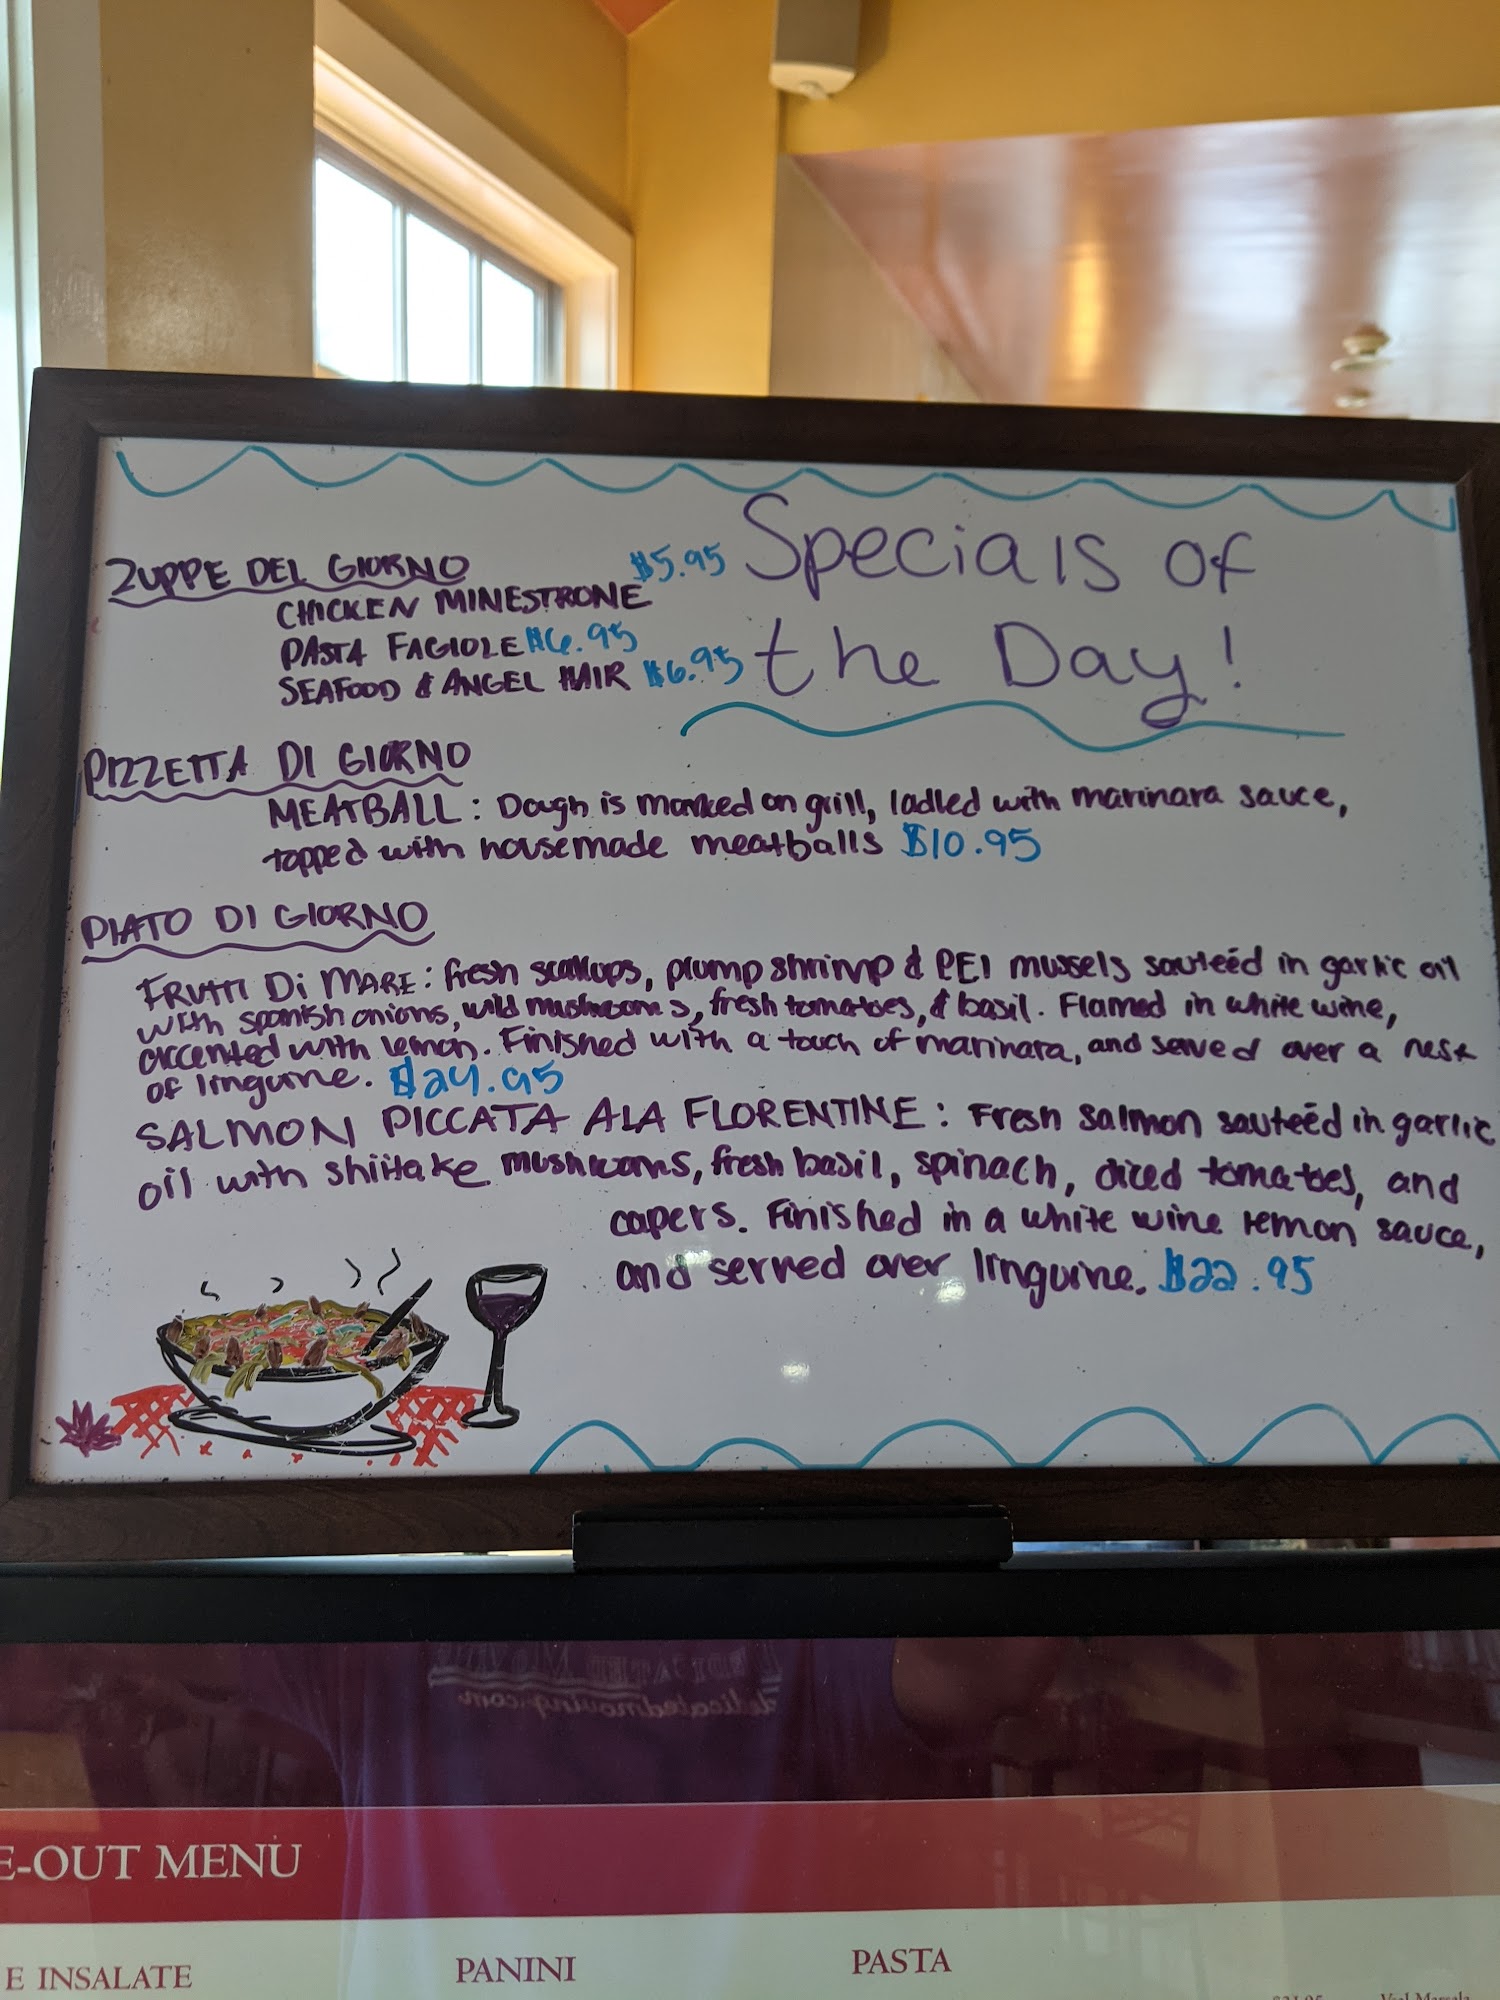 Specials of
the Day!
ZUPPE DEL GIORNO
CHICKEN MINESTRONE $5.95
PASTA FAGIOLE $6.95
SEAFOOD & ANGEL HAIR $6.95
PIZZETTA DI GIORNO
MEATBALL: Dough is marked on grill, ladled with marinara sauce,
topped with housemade meatballs $10.95
PIATO DI GIORNO
FRUTTI Di MARE: fresh scallops, plump shrimp & PEI mussels sauteéd in garlic oil
with spanish onions, wild mushrooms, fresh tomatoes, & basil. Flamed in white wine,
accented with lemon. Finished with a touch of marinara, and served over a nest
of linguine. $24.95
SALMON PICCATA ALA FLORENTINE: Fresh salmon sauteéd in garlic
oil with shiitake mushrooms, fresh basil, spinach, diced tomatoes, and
capers. Finished in a white wine lemon sauce,
and served over linguine. $22.95
dedicatedmoving.com
E-OUT MENU
E INSALATE
PANINI
PASTA